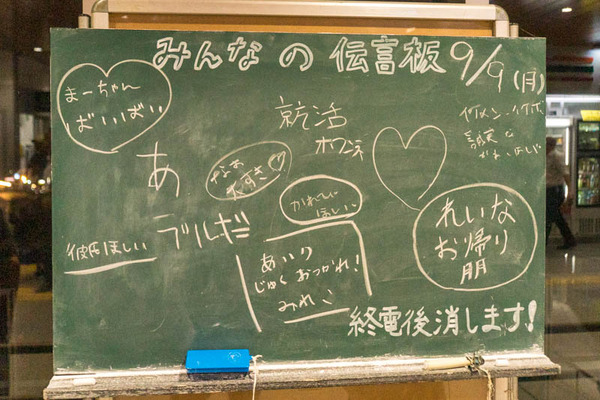 みんなの伝言板 9/9(月)
まーちゃん
ばいばい
就活
オワ
イケメン
誠実な
ほしい
あ
なお
大すき♡
かれし
ほしい
れいな
お帰り
朋
ラルゴ
彼氏ほしい
あいり
じゅく おつかれ!
みれい
終電後消します!